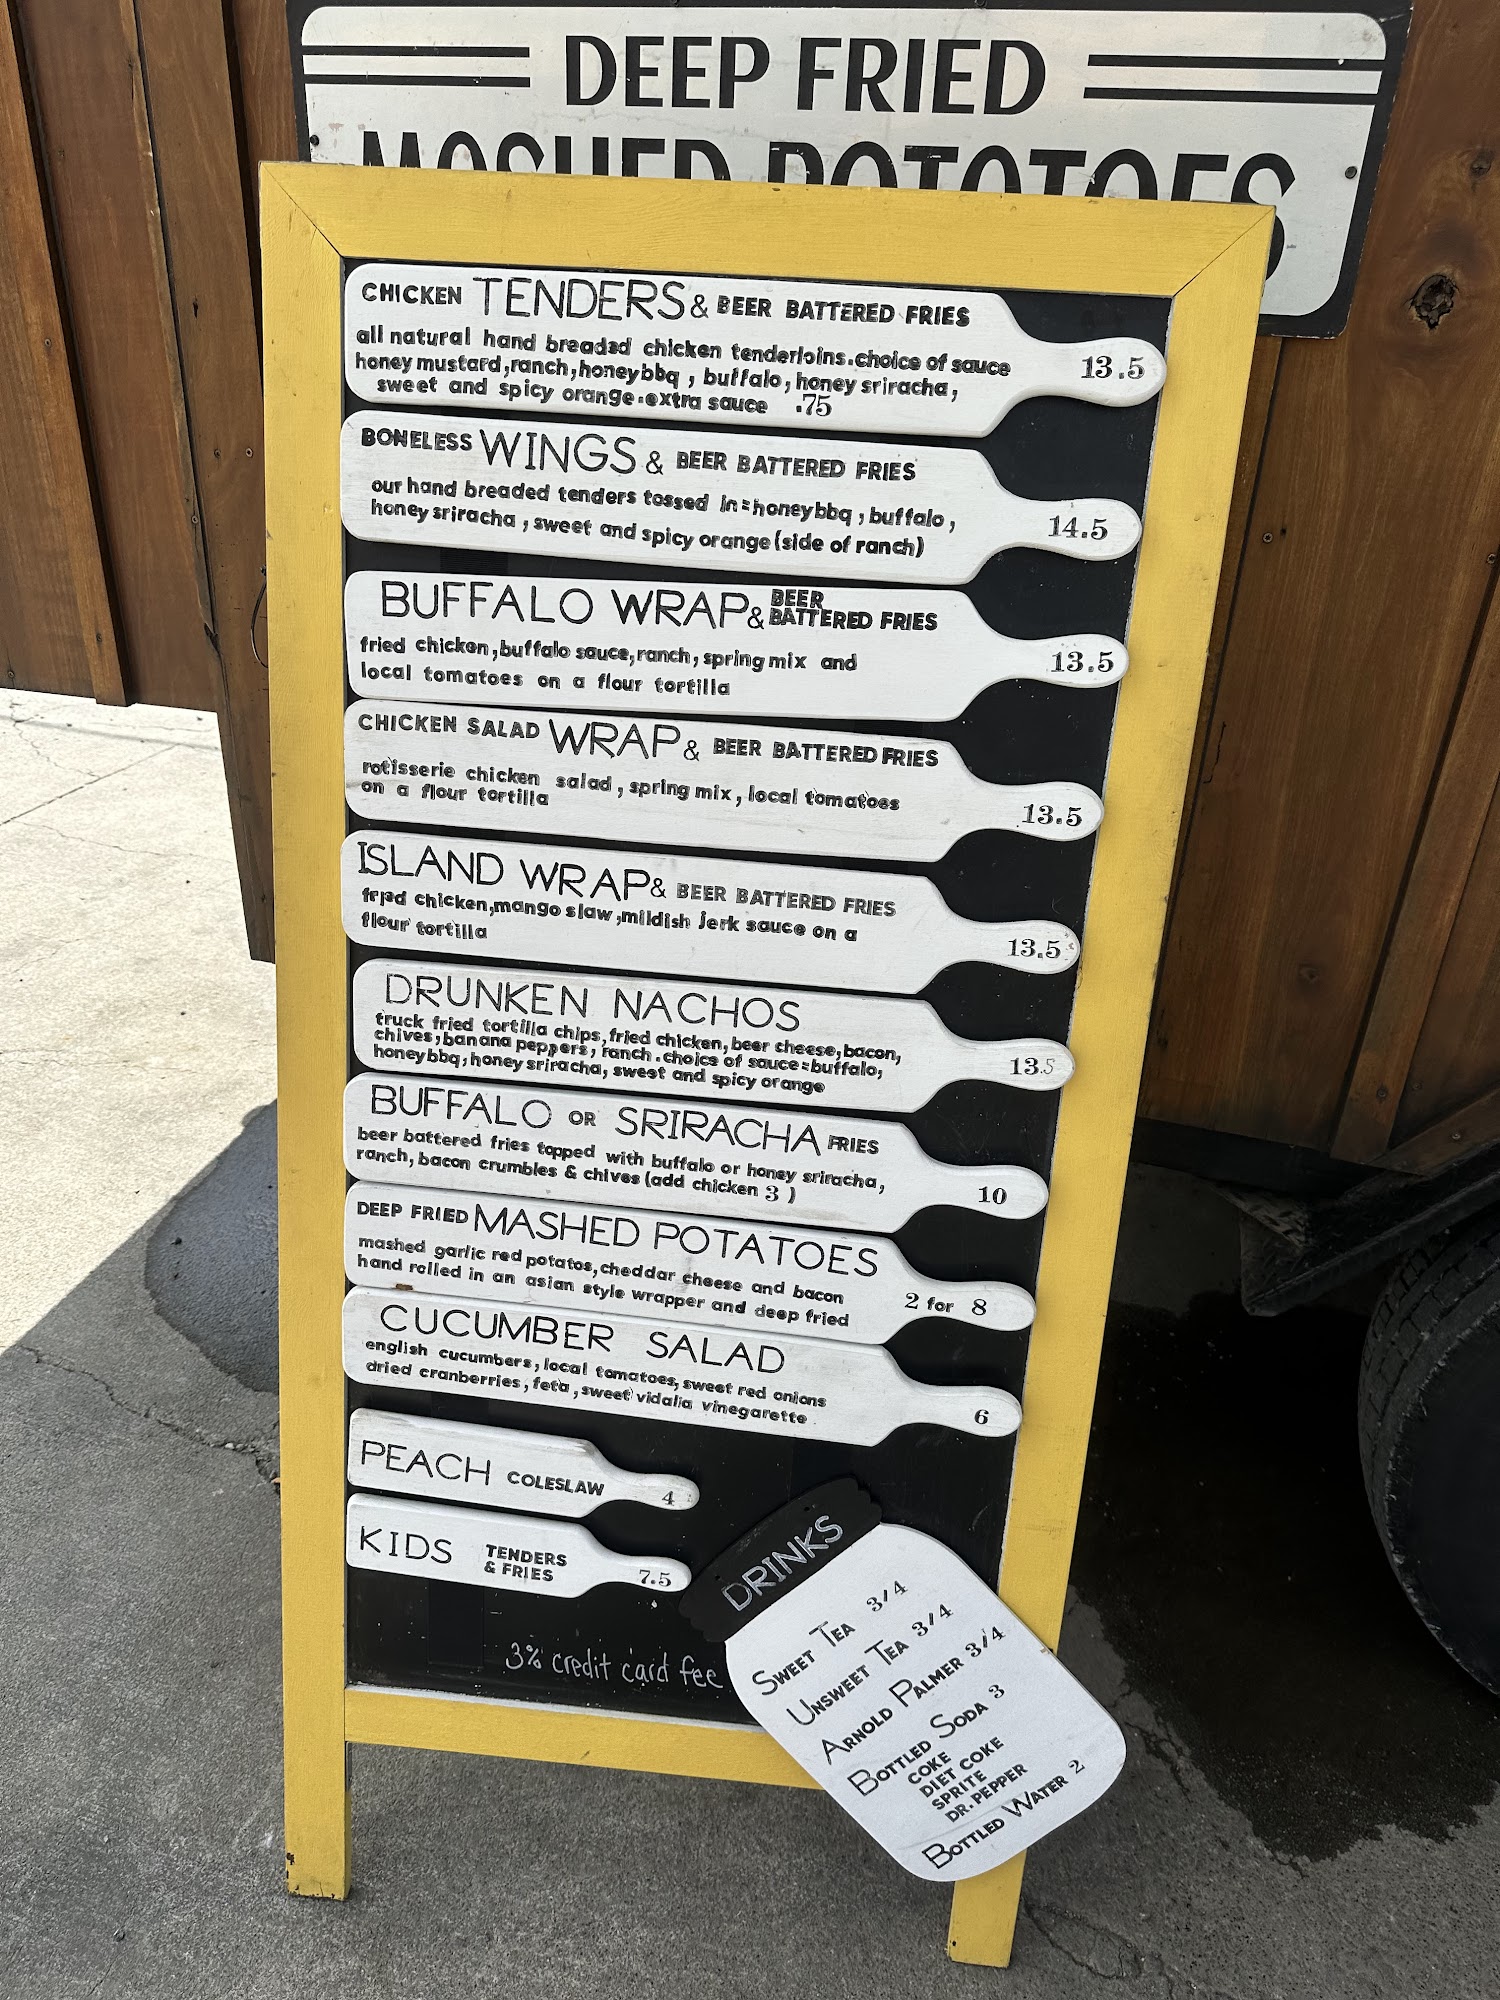 DEEP FRIED
MASHED POTATOES
CHICKEN TENDERS & BEER BATTERED FRIES
all natural hand breaded chicken tenderloins.choice of sauce
honey mustard,ranch,honey bbq , buffalo, honey sriracha,
sweet and spicy orange.extra sauce .75
13.5
BONELESS WINGS & BEER BATTERED FRIES
our hand breaded tenders tossed in=honey bbq , buffalo ,
honey sriracha , sweet and spicy orange (side of ranch)
14.5
BUFFALO WRAP & BEER BATTERED FRIES
fried chicken,buffalo sauce,ranch, spring mix and
local tomatoes on a flour tortilla
13.5
CHICKEN SALAD WRAP & BEER BATTERED FRIES
rotisserie chicken salad , spring mix , local tomatoes
on a flour tortilla
13.5
ISLAND WRAP & BEER BATTERED FRIES
fried chicken,mango slaw ,mildish jerk sauce on a
flour tortilla
13.5
DRUNKEN NACHOS
truck fried tortilla chips, fried chicken, beer cheese, bacon,
chives, banana peppers, ranch .choice of sauce=buffalo,
honey bbq, honey sriracha, sweet and spicy orange
13.5
BUFFALO OR SRIRACHA FRIES
beer battered fries topped with buffalo or honey sriracha,
ranch, bacon crumbles & chives (add chicken 3 )
10
DEEP FRIED MASHED POTATOES
mashed garlic red potatos, cheddar cheese and bacon
hand rolled in an asian style wrapper and deep fried
2 for 8
CUCUMBER SALAD
english cucumbers, local tomatoes, sweet red onions
dried cranberries, feta , sweet vidalia vinegarette
6
PEACH COLESLAW
4
KIDS TENDERS
& FRIES
7.5
3% credit card fee
DRINKS
SWEET TEA 3/4
UNSWEET TEA 3/4
ARNOLD PALMER 3/4
BOTTLED SODA 3
COKE
DIET COKE
SPRITE
DR. PEPPER
BOTTLED WATER 2